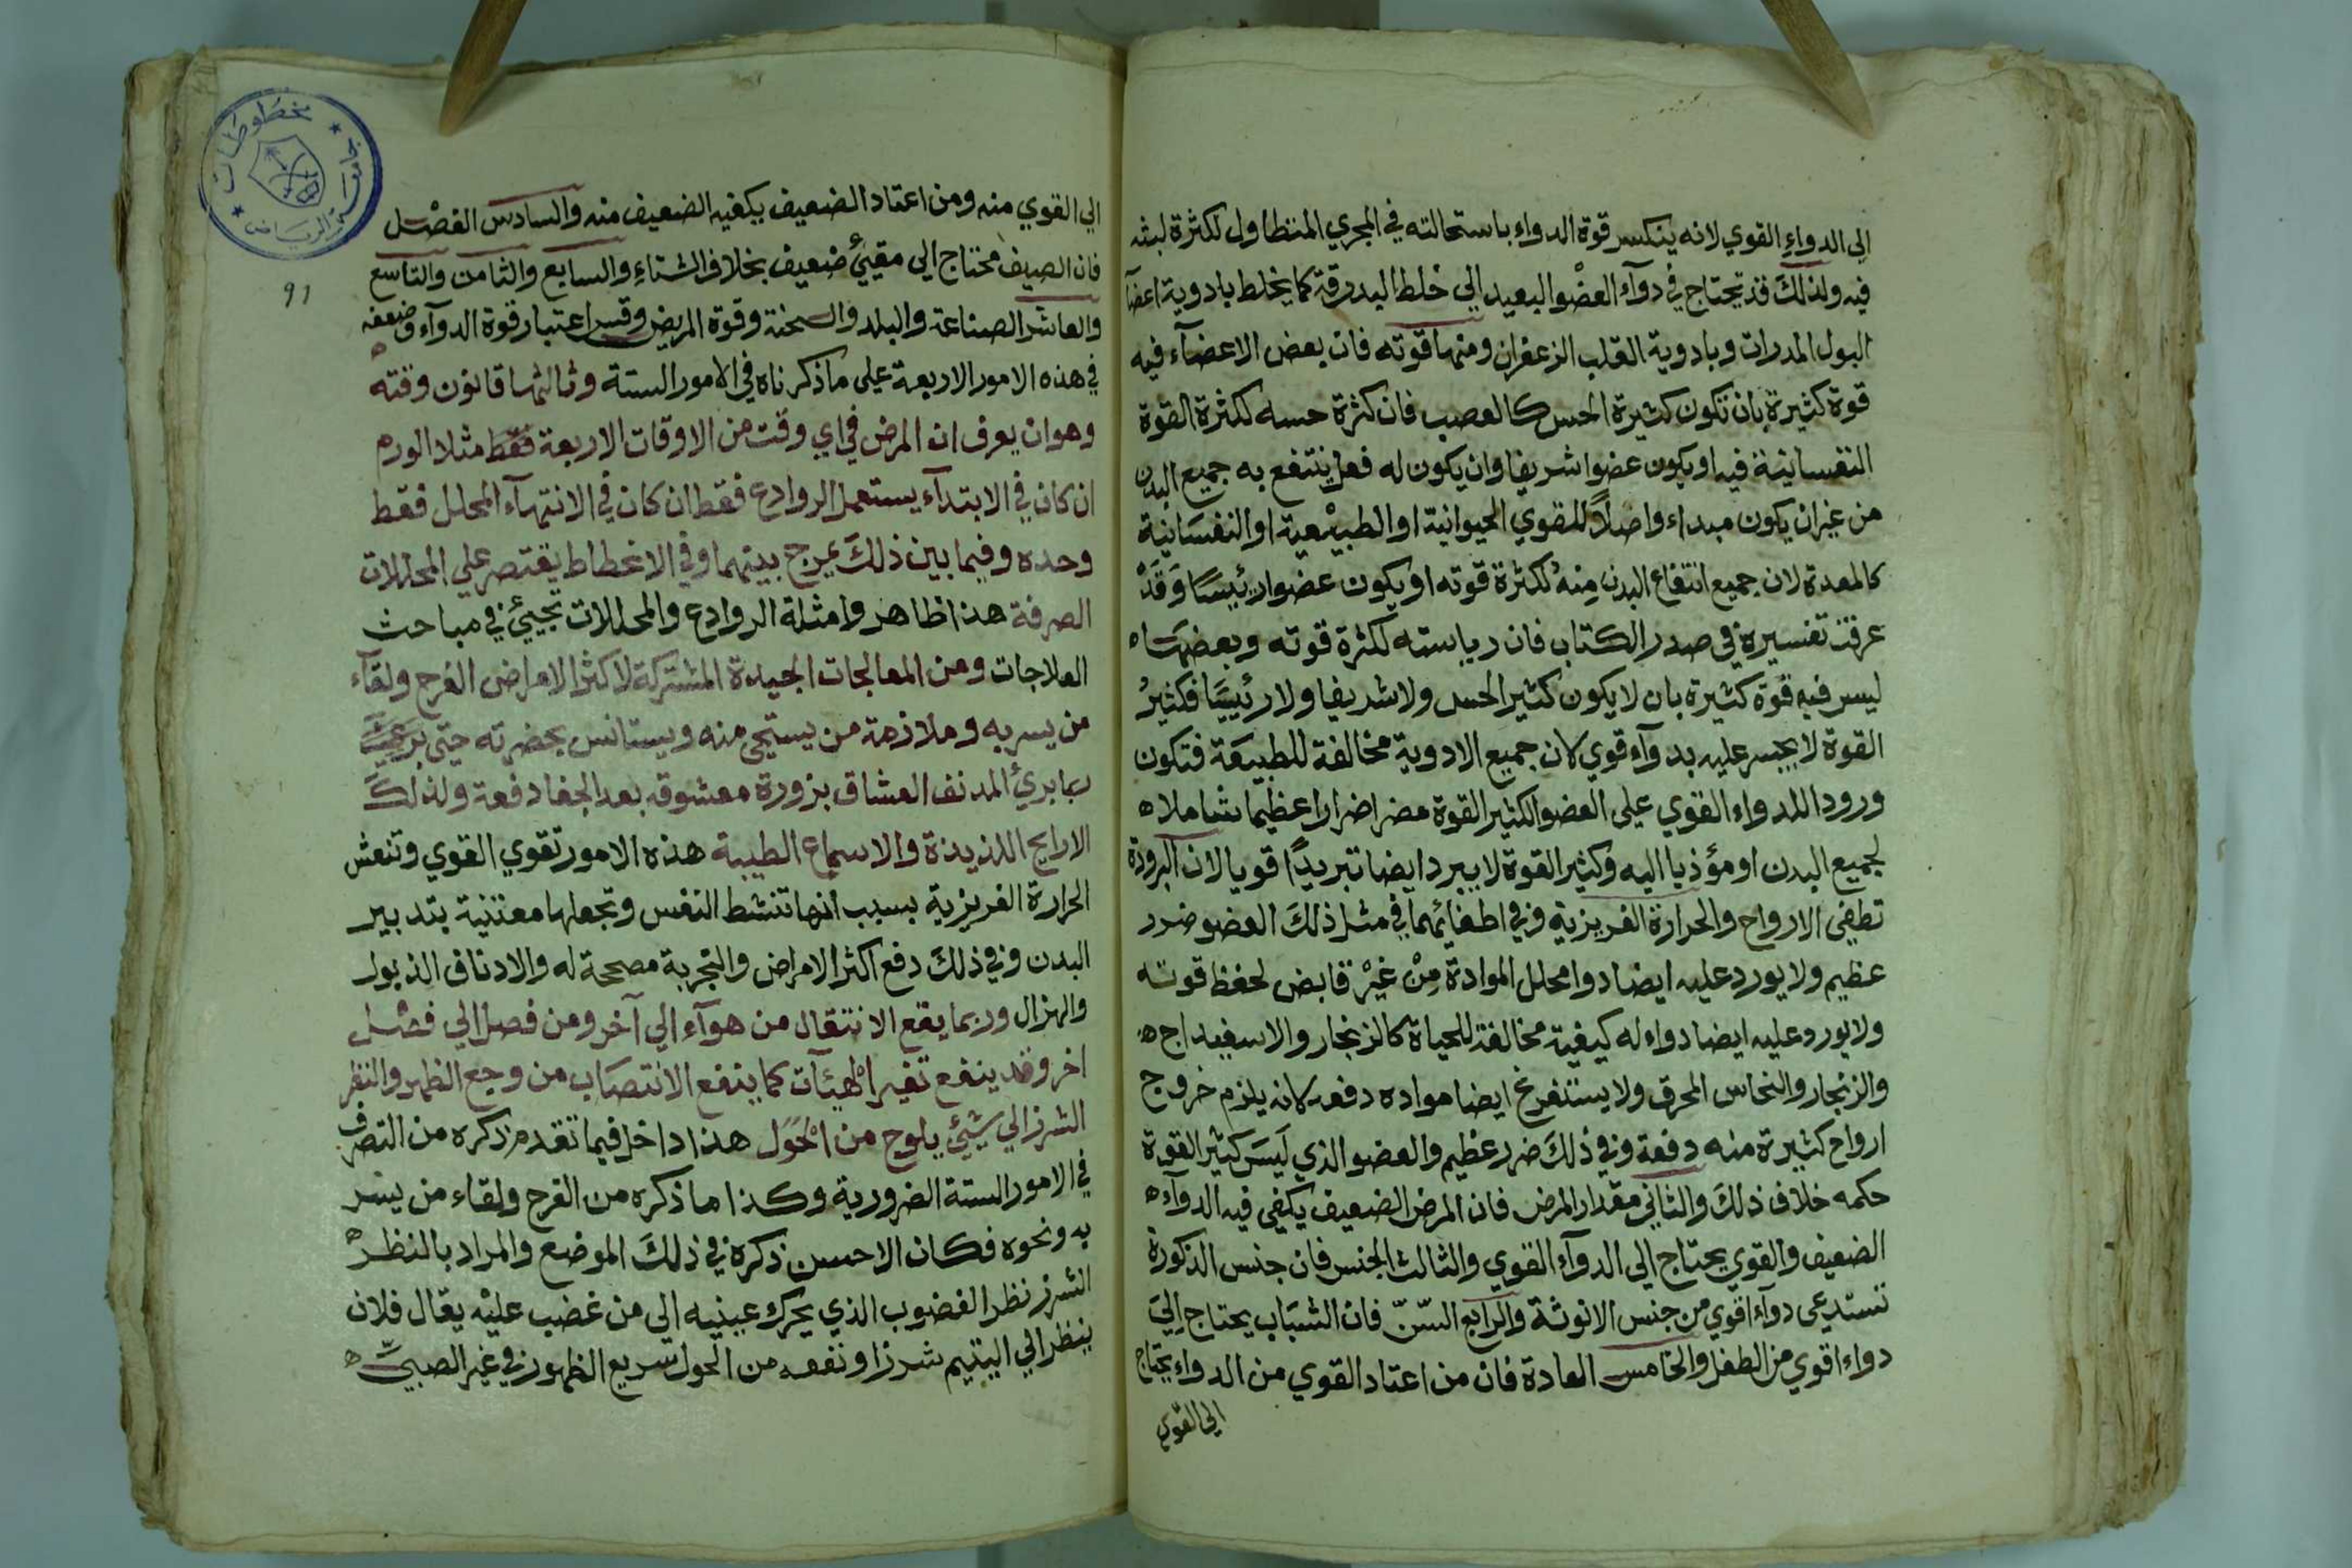 الى الدواء القوي لانه ينكسر قوة الدواء باستحالته في المجري المتطاول لكثرة لبثه
فيه ولذلك قد تحتاج في دوآء العضو البعيد الي خلط البدرقة كما يخلط بادوية اعضآ
البول المدرات وبادوية القلب الزعفران ومنها قوته فان بعض الاعضآء فيه
قوة كثيرة بان تكون كثيرة الحس كالعصب فان كثرة حسه لكثرة القوة
النفسانية فيه او يكون عضوا شريفا وان يكون له فعل ينتفع به جميع البدن
من غير ان يكون مبداء واصلاً للقوي الحيوانية او الطبيعية او النفسانية
كالمعدة لان جميع انتفاع البدن منه لكثرة قوته او يكون عضوا رئيسًا وقد
عرفت تفسيره في صدر الكتاب فان رياسته لكثرة قوته وبعضها ه
ليس فيه قوة كثيرة بان لا يكون كثير الحس ولا شريفا ولا رئيسًا فكثير
القوة لا يجسر عليه بدوآء قوي لان جميع الادوية مخالفة للطبيعة فتكون
ورود الدواء القوي على العضو الكثير القوة مضر اضرارا عظيما شاملا ه
لجميع البدن او مؤذيا اليه وكثير القوة لا يبرد ايضا تبريدًا قويا لان البرودة
تطفى الارواح والحرارة الغريزية وفي اطفائهما في مثل ذلك العضو ضرر
عظيم ولا يورد عليه ايضا دوا محلل الموادة من غير قابض لحفظ قوته
ولا يورد عليه ايضا دواء له كيفية مخالفة للحياة كالزنجار والاسفيداج ه
والزنجار والنحاس المحرق ولا يستفرغ ايضا مواده دفعه لانه يلزم خروج
ارواح كثيرة منه دفعة وفي ذلك ضرر عظيم والعضو الذي ليس كثير القوة
حكمه خلاف ذلك والثاني مقدار المرض فان المرض الضعيف يكفي فيه الدوآء ه
الضعيف والقوي يحتاج الي الدوآء القوي والثالث الجنس فان جنس الذكورة
تستدعى دوآء اقوي من جنس الانوثة والرابع السّنّ فان الشباب يحتاج الي
دواء اقوي من الطفل والخامس العادة فان من اعتاد القوي من الدواء يحتاج
الى القوي
الي القوي منه ومن اعتاد الضعيف يكفيه الضعيف منه والسادس الفصل
فان الصيف محتاج الى مقيئ ضعيف بخلاف الشتاء والسابع والثامن والتاسع
والعاشر الصناعة والبلد والسحنة وقوة المريض وقس اعتبار قوة الدوآء وضعفه
في هذه الامور الاربعة على ما ذكرناه في الامور الستة وثالثها قانون وقته ه
وهو ان يعرف ان المرض في اي وقت من الاوقات الاربعة فقط مثلا الورم
ان كان في الابتدآء يستعمل الروادع فقط ان كان في الانتهآء المحلل فقط
وحده وفيما بين ذلك يمزج بينهما وفي الانحطاط يقتصر علي المحللات
الصرفة هذا ظاهر وامثلة الروادع والمحللات تجيئ في مباحث
العلاجات ومن المعالجات الجيدة المشتركة لاكثر الامراض الفرح ولقآء
من يسر به وملازمة من يستحي منه ويستانس بحضرته حتى
ربما برئ المدنف العشاق بزورة معشوقه بعد الجفا دفعة ولذلك
الارايح اللذيذة والاسماع الطيبة هذه الامور تقوي القوي وتنعش
الحرارة الغريزية بسبب انها تنشط النفس وتجعلها معتنية بتدبير
البدن وفي ذلك دفع اكثر الامراض والتجربة مصححة له والادناف الذبول
والهزال وربما يقع الانتقال من هوآء الي آخر ومن فصل الي فصل
اخر وقد ينفع تغير الهيئآت كما ينفع الانتصاب من وجع الظهر والنظر
الشرز الي شيئ يلوح من الحول هذا داخل فيما تقدم ذكره من التصرف
في الامور الستة الضرورية وكذا ما ذكره من الفرح ولقاء من يسر
به ونحوه فكان الاحسن ذكره في ذلك الموضع والمراد بالنظر ه
الشرز نظر الغضوب الذي يحرك عينيه الي من غضب عليه يقال فلان
ينظر الي اليتيم شرزا ونفعه من الحول سريع الظهور في غير الصبيّ ه
91
مخطوطات
الرياض